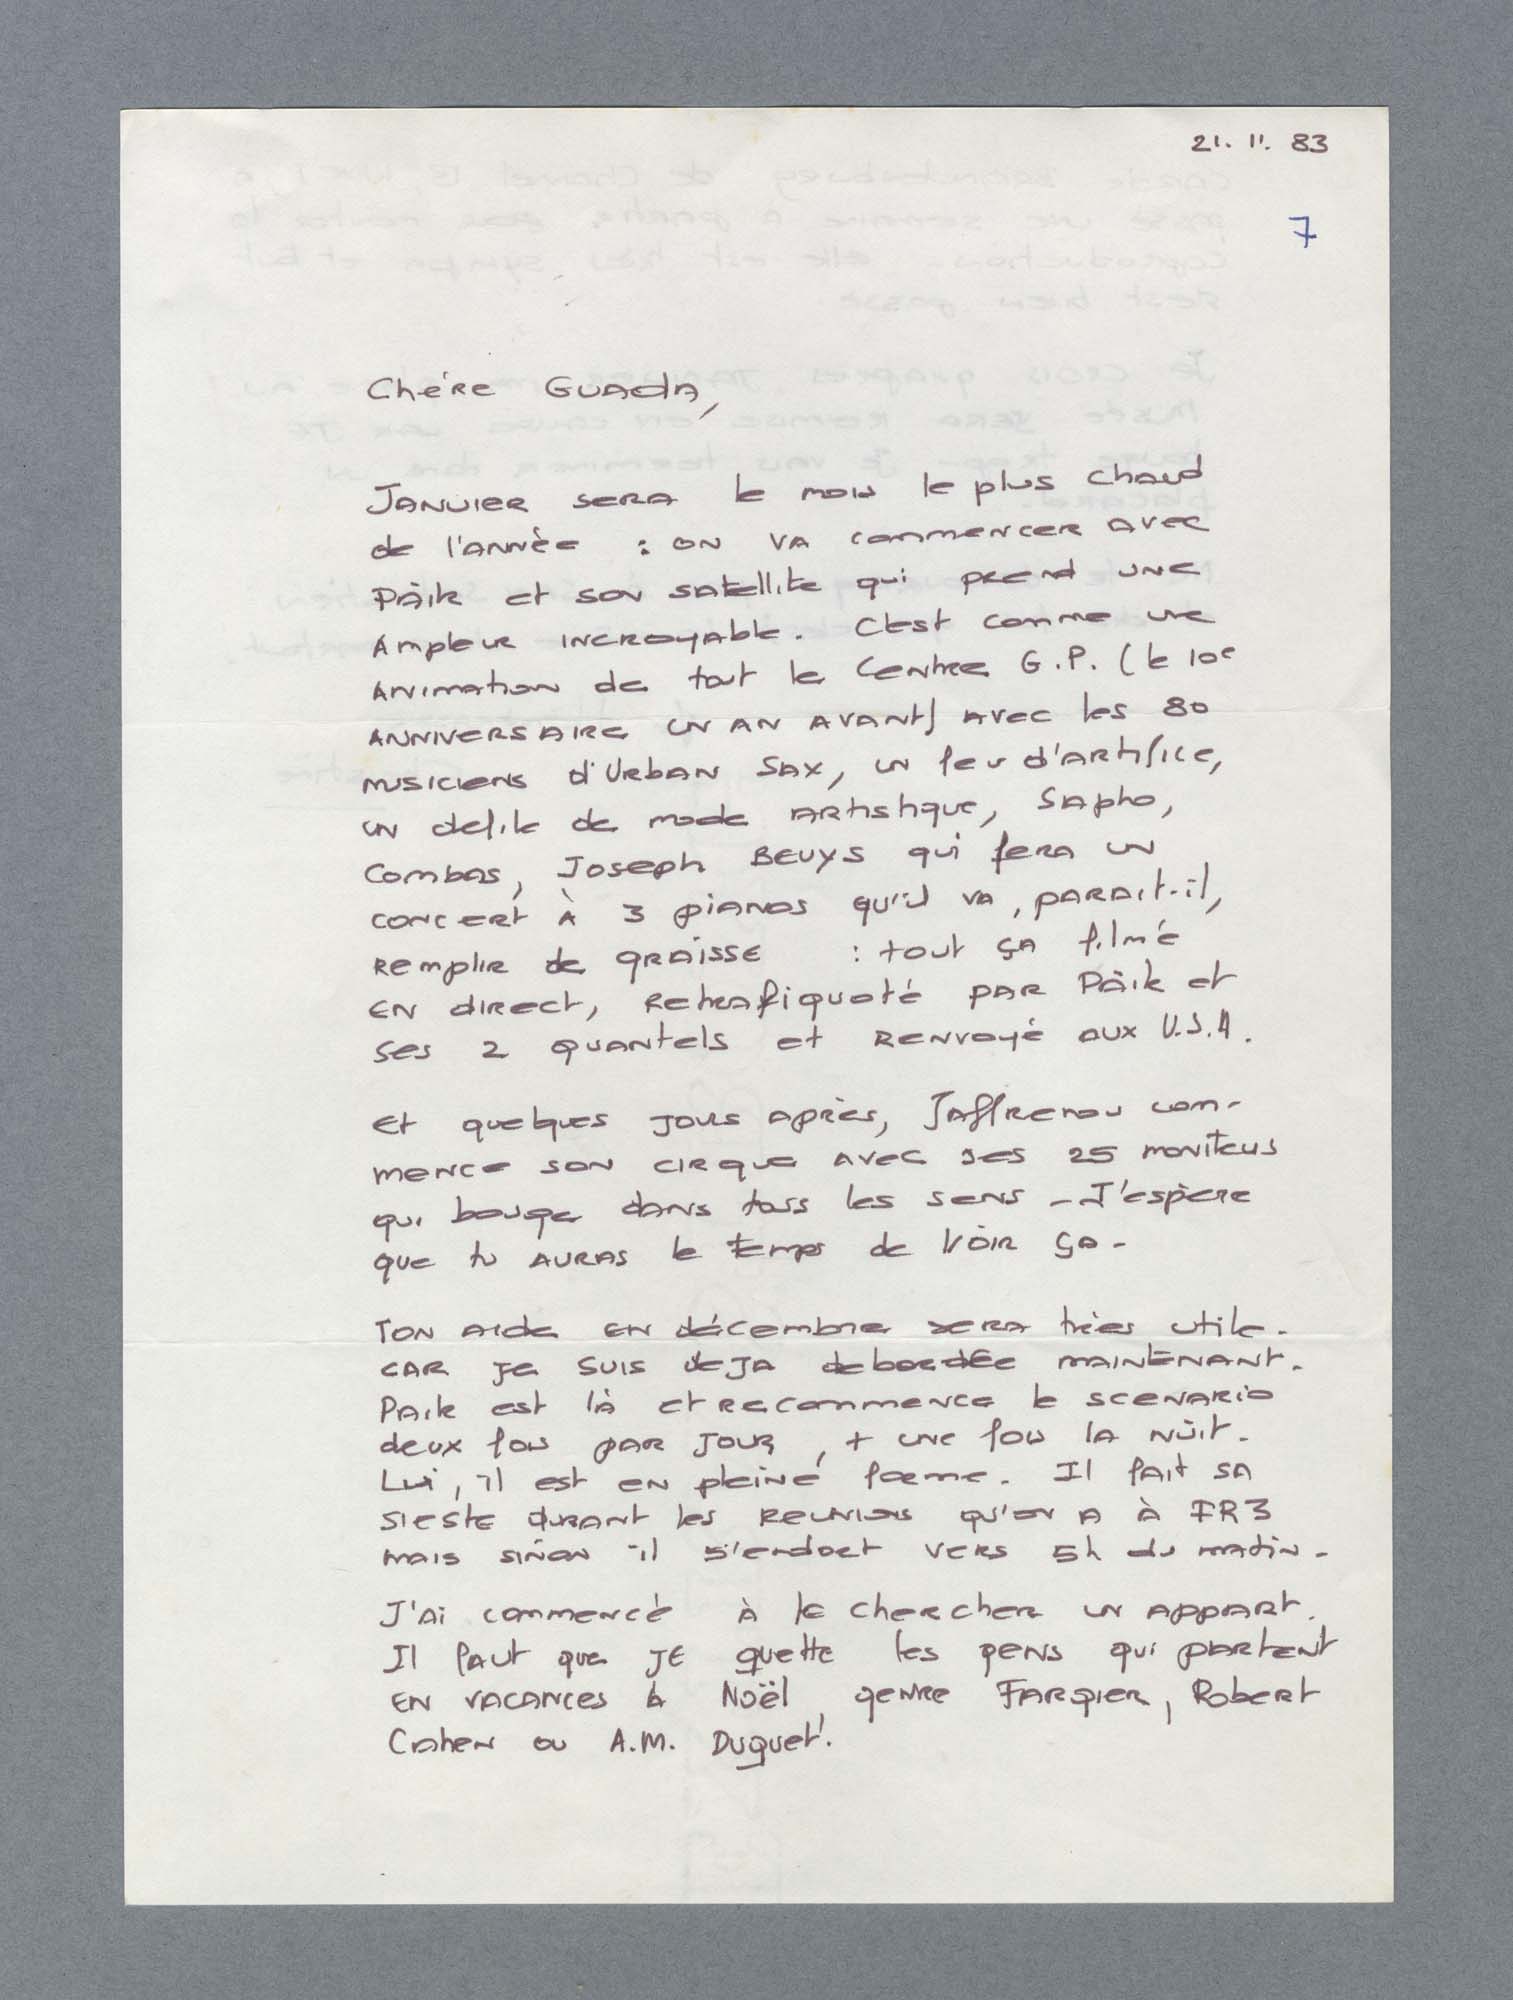 21. 11. 83
7
Chére Guada,
Janvier sera le mois le plus chaud
de l'année : on va commencer avec
Païk et son satellite qui prend une
ampleur incroyable. C'est comme une
animation de tout le Centre G.P. (le 10e
anniversaire un an avant) avec les 80
musiciens d'Urban Sax, un feu d'artifice,
un defilé de mode artistique, Sapho,
Combas, Joseph Beuys qui fera un
concert à 3 pianos qu'il va, parait-il,
remplir de graisse : tout ça filmé
en direct, retrafiquoté par Païk et
ses 2 quantels et renvoyé aux U.S.A.
Et quelques jours après, Jaffrenou com-
mence son cirque avec ses 25 moniteurs
qui bouge dans tous les sens - J'espère
que tu auras le temps de voir ça -
Ton aide en décembre sera très utile -
car je suis deja debordée maintenant.
Paik est là et recommence le scenario
deux fois par jour, + une fois la nuit.
Lui, il est en pleine forme. Il fait sa
sieste durant les reunions qu'on a à FR3
mais sinon il s'endort vers 5h du matin -
J'ai commencé à te chercher un appart.
Il faut que je guette les gens qui partent
en vacances à Noël, genre Fargier, Robert
Cahen ou A.M. Duguet!